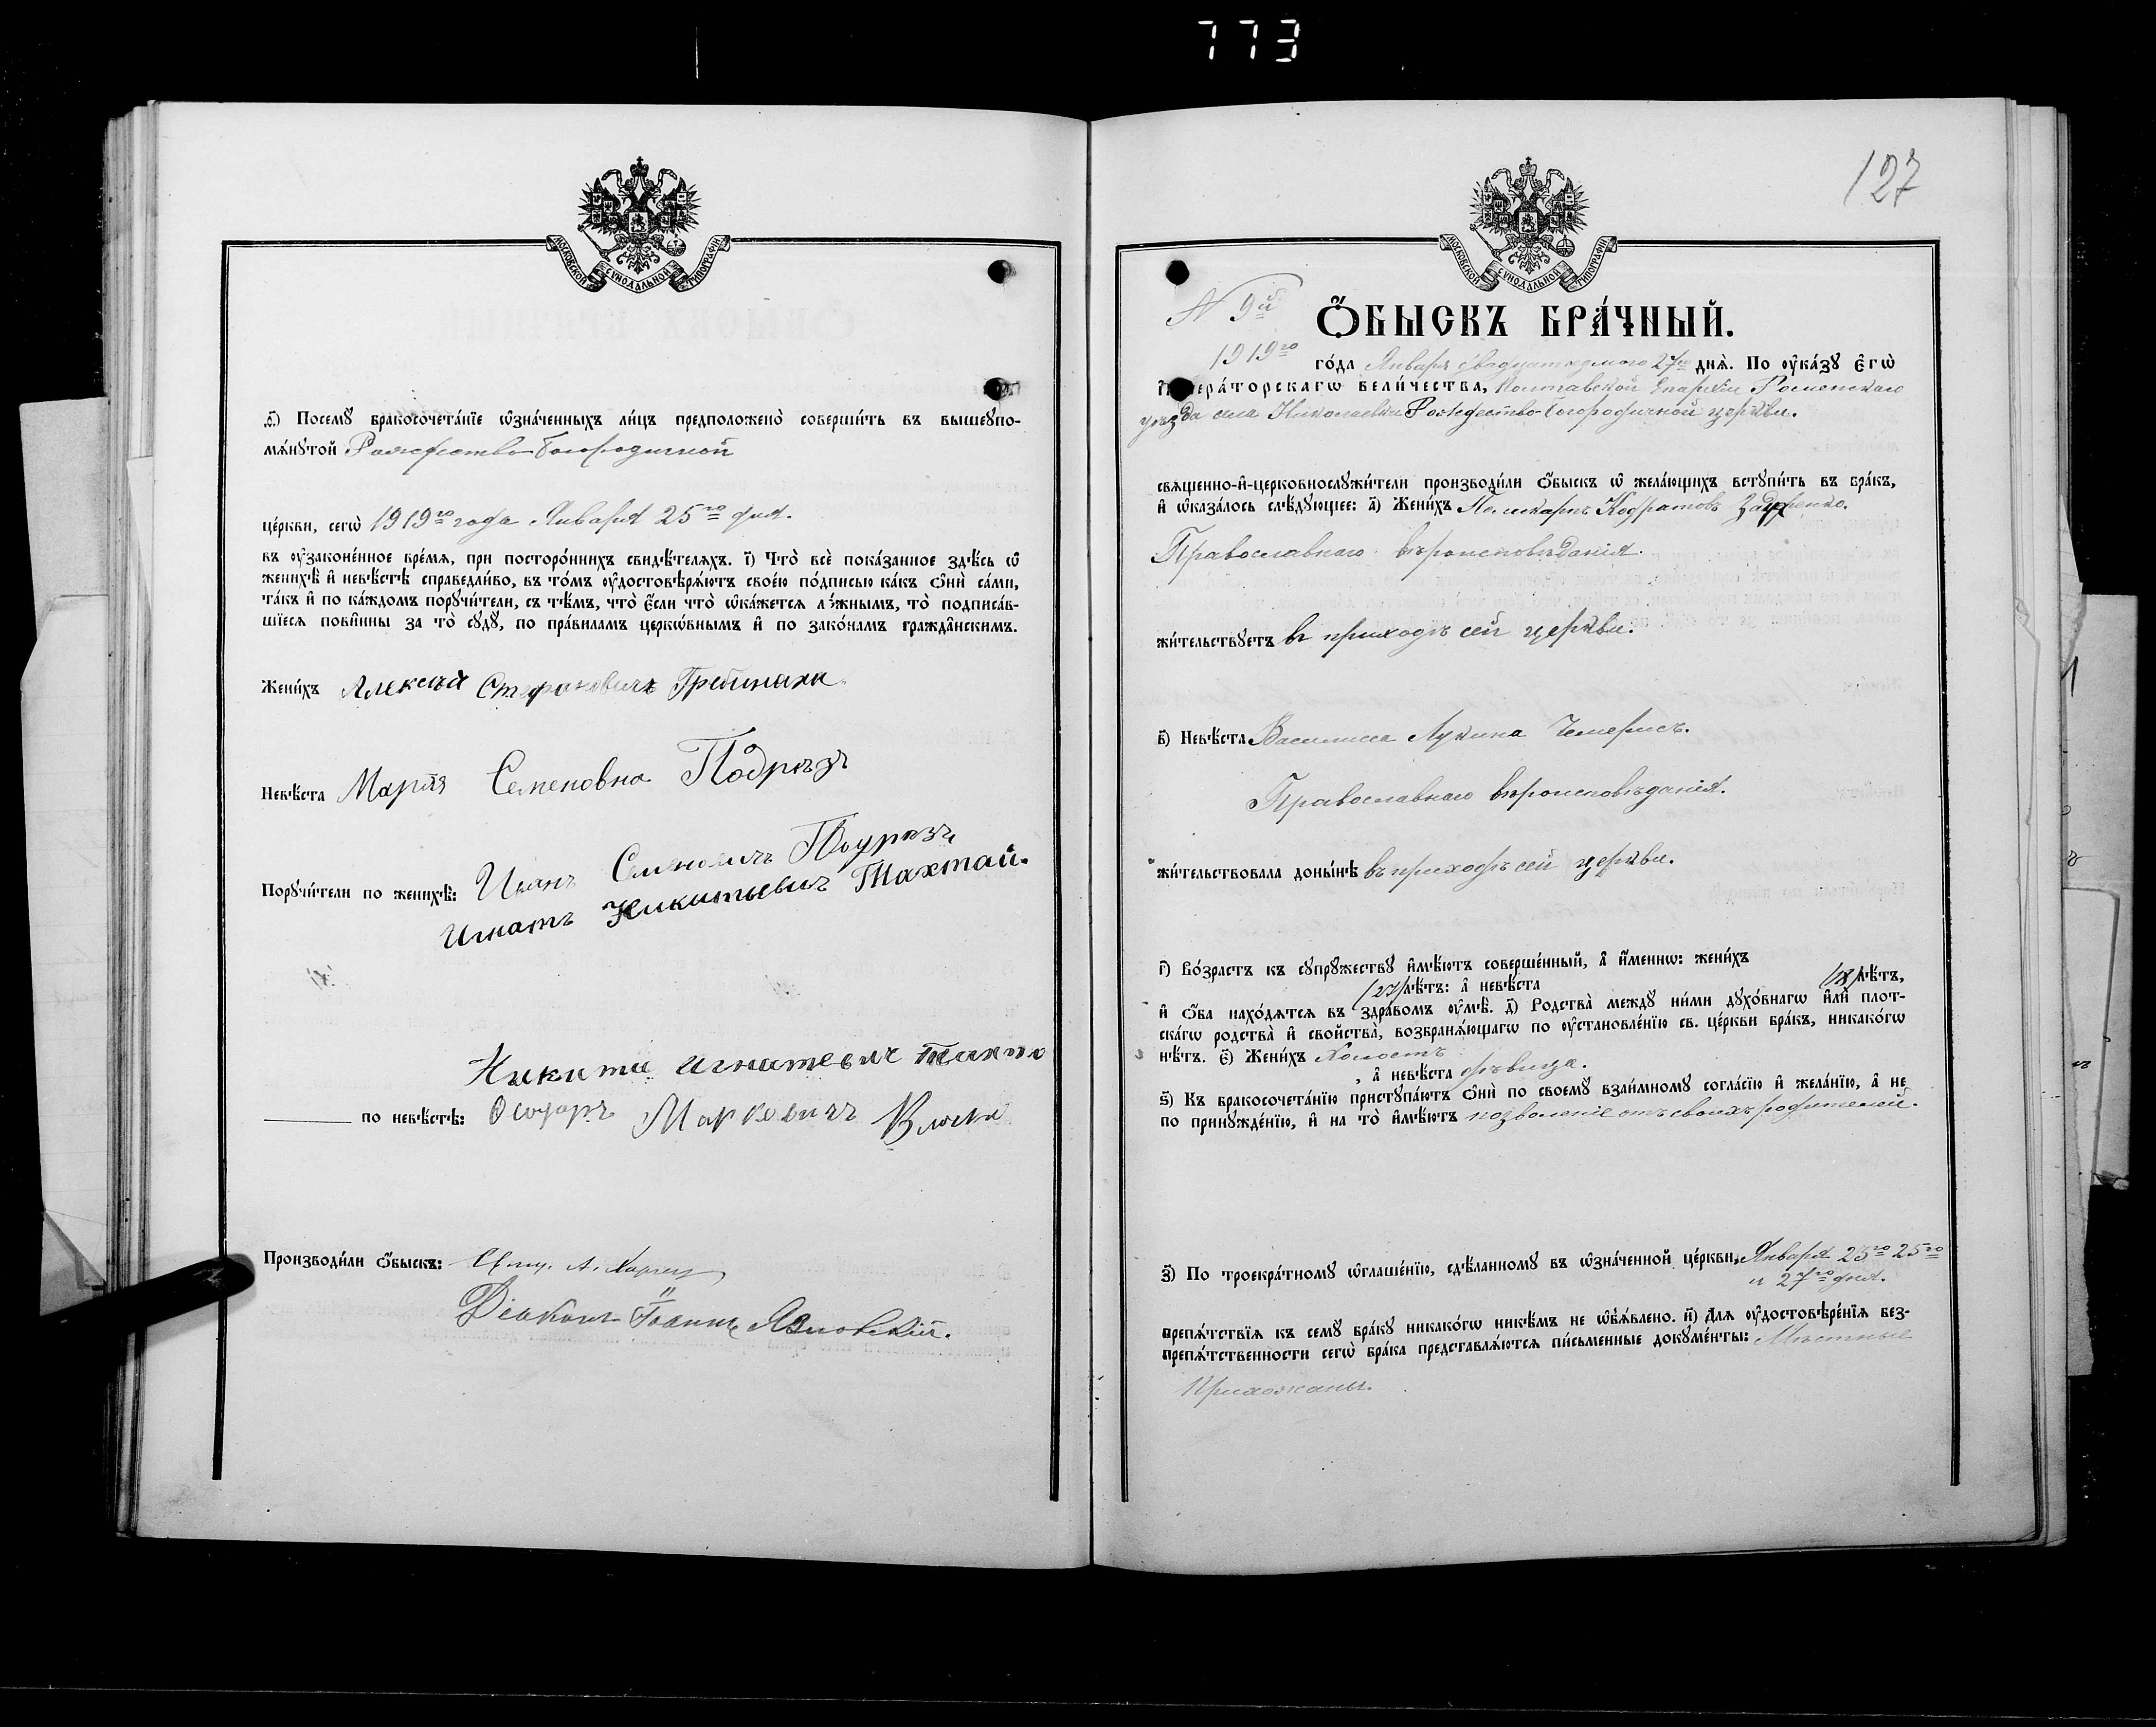 773
МОСКОВСКОЙ СѴНОДАЛЬНОЙ ТИПОГРАФІИ
.ѳ҃.) Посемꙋ̀ бракосочета́нїе ѡ҆зна́ченныхъ ли́цъ предположено̀ соверши́ть въ вышеꙋпо-
мѧ́нꙋтой Рождество-Богородичной
це́ркви, сегѡ̀ 1919го года Января 25го дня.
въ ᲂу҆законе́нное вре́мѧ, при посторо́ннихъ свидѣ́телѧхъ. і҃) Что̀ всѐ пока́занное здѣ́сь ѡ҆
женихѣ̀ и҆ невѣ́стѣ справедли́во, въ то́мъ ᲂу҆достовѣрѧ́ютъ свое́ю по́дписью ка́къ ѻ҆нѝ са́ми,
та́къ и҆ по ка́ждомъ порꙋчи́тели, съ тѣ́мъ, что̀ є҆́сли что̀ ѡ҆ка́жетсѧ ло́жнымъ, то̀ подписа́в-
шїесѧ пови́нны за то̀ сꙋдꙋ̀, по пра́виламъ церкѡ́внымъ и҆ по зако́намъ гражда́нскимъ.
Жени́хъ Алексѣй Стефановичъ Гребинаха
Невѣ́ста Марія Семеновна Подрѣзъ
Порꙋчи́тели по женихѣ̀: Иванъ Семеновичъ Подрѣзъ
Игнатъ Никитьевичъ Тахтай.
Никита Игнатевич
по невѣ́стѣ: Ѳеодоръ Марковичъ
Производи́ли ѻ҆́быскъ: Свящ. А.
Діаконъ Іоаннъ
127
МОСКОВСКОЙ СѴНОДАЛЬНОЙ ТИПОГРАФІИ
N 9й
Ѻ҆́БЫСКЪ БРА́ЧНЫЙ.
1919го го́да Января двадцатседмого 27го днѧ̀. По ᲂу҆ка́зꙋ Е҆гѡ̀
И҆мпера́торскагѡ вели́чества, Полтавской Епархіи Роменскаго
уѣзда села Николаевки Рождество-Богородичной церкви.
свѧще́нно-и҆-церковнослꙋжи́тели производи́ли ѻ҆́быскъ ѡ҆ жела́ющихъ встꙋпи́ть въ бра́къ,
и҆ ѡ҆каза́лось слѣ́дꙋющее: а҃) Жени́хъ Поликарпъ Кодратовъ
Православнаго вѣроисповѣданія.
жи́тельствꙋетъ въ приходѣ сей церкви.
в҃) Невѣ́ста Василисса Лукина Чемерисъ.
Православнаго вѣроисповѣданія.
жи́тельствовала доны́нѣ въ приходѣ сей церкви.
г҃) Во́зрастъ къ сꙋпрꙋ́жествꙋ и҆мѣ́ютъ соверше́нный, а҆ и҆́меннѡ: жени́хъ
/27/ лѣ́тъ: а҆ невѣ́ста /18/ лѣ́тъ,
и҆ ѻ҆́ба нахо́дѧтсѧ въ здра́вомъ ᲂу҆мѣ̀. д҃) Родства̀ междꙋ ни́ми дꙋхо́внагѡ и҆лѝ пло́т-
скагѡ родства̀ и҆ свойства̀, возбранѧ́ющагѡ по ᲂу҆становле́нїю св. це́ркви бра́къ, никако́гѡ
нѣ́тъ. є҃) Жени́хъ холостъ
, а҆ невѣ́ста дѣвица.
ѕ҃) Къ бракосочета́нїю пристꙋпа́ютъ ѻ҆нѝ по своемꙋ̀ взаи́мномꙋ согла́сїю и҆ жела́нїю, а҆ не
по принꙋжде́нїю, и҆ на то̀ и҆мѣ́ютъ позволеніе отъ своихъ родителей.
з҃) По троекра́тномꙋ ѡ҆глаше́нїю, сдѣ́ланномꙋ въ ѡ҆зна́ченной це́ркви, Января 23го 25го
и 27го дня.
препѧ́тствїѧ къ семꙋ̀ бра́кꙋ никако́гѡ никѣ́мъ не ѡ҆б̾ѧ́влено. и҃) Длѧ ᲂу҆достовѣре́нїѧ без-
препѧ́тственности сегѡ̀ бра́ка представлѧ́ютсѧ пи́сьменные докꙋме́нты: Мѣстные
Прихожаны.